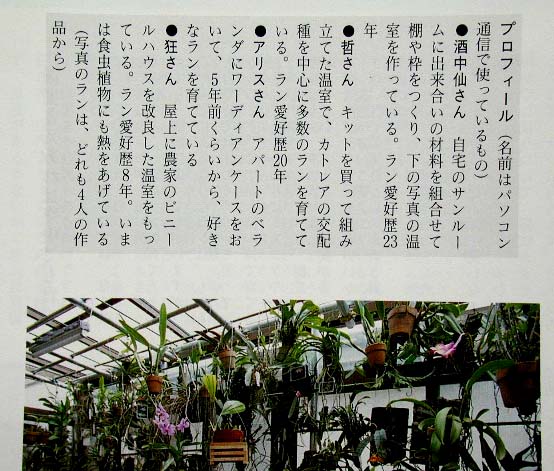 プロフィール（名前はパソコン
通信で使っているもの）
●酒中仙さん　自宅のサンルー
ムに出来合いの材料を組合せて
棚や枠をつくり、下の写真の温
室を作っている。ラン愛好歴23
年
●哲さん　キットを買って組み
立てた温室で、カトレアの交配
種を中心に多数のランを育てて
いる。ラン愛好歴20年
●アリスさん　アパートのベラ
ンダにワーディアンケースをお
いて、5年前くらいから、好き
なランを育てている
●狂さん　屋上に農家のビニー
ルハウスを改良した温室をもっ
ている。ラン愛好歴8年。いま
は食虫植物にも熱をあげている
（写真のランは、どれも4人の作
品から）